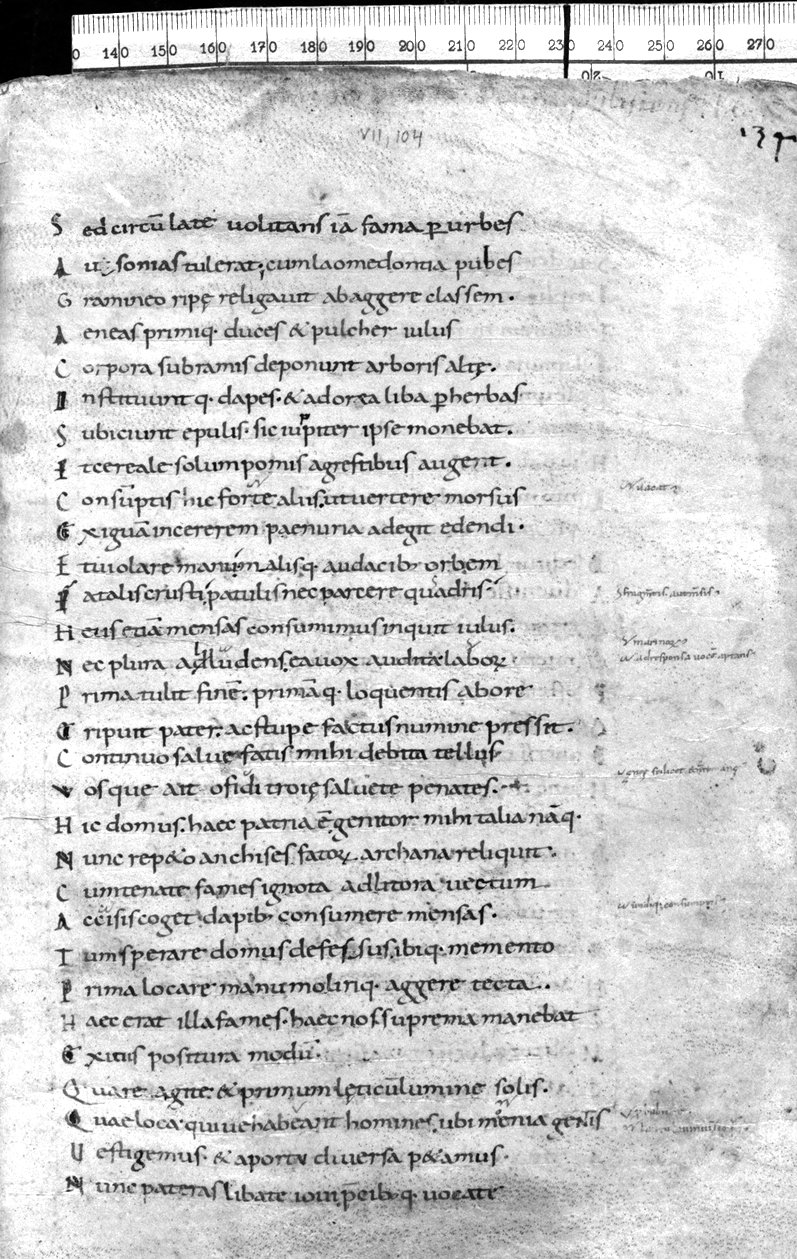 140 150 160 170 180 190 200 210 220 230 240 250 260 270
VII, 104
137
S ed circū late uolitans iā fama ꝑ urbes
A usonias tulerat; cum laomedontia pubes
G ramineo ripę religauit ab aggere classem.
A eneas primiq. duces & pulcher iulus
C orpora sub ramis deponunt arboris altę.
I nstituunt q. dapes. & adorea liba ꝑ herbas
S ubiciunt epulis. sic iupiter ipse monebat.
E t cereale solum pomis agrestibus augent.
C onsūptis hic forte aliis. ut uertere morsus
E xiguā in cererem paenuria adegit edendi.
E t uiolare manu malisq. audacib; orbem
F atalis crusti patulis nec parcere quadris.
H eus etiā mensas consumimus inquit iulus.
N ec plura adludens. ea uox audita laboꝝ
P rima tulit finē. primāq. loquentis abore
E ripuit pater. ac stupe factus numine pressit.
C ontinuo salue fatis mihi debita tellus
V os que ait o fidi troię saluete penates.
H ic domus. haec patria ē. genitor mihi talia nāq.
N unc rep&o anchises fatoꝝ archana reliquit.
C um te nate fames ignota ad litora uectum
A ccisis coget dapib; consumere mensas.
T um sperare domus defessus. ibiq. memento
P rima locare manu moliriq. aggere tecta..
H aec erat illa fames. haec nos suprema manebat
E xitiis positura modū.
Q uare agite & primum lęti cū lumine solis.
Q uae loca. qui ue habeant homines. ubi menia gentis
U estigemus. & aportu diuersa p&amus.
N unc pateras libate ioui p̄cib; q. uocate